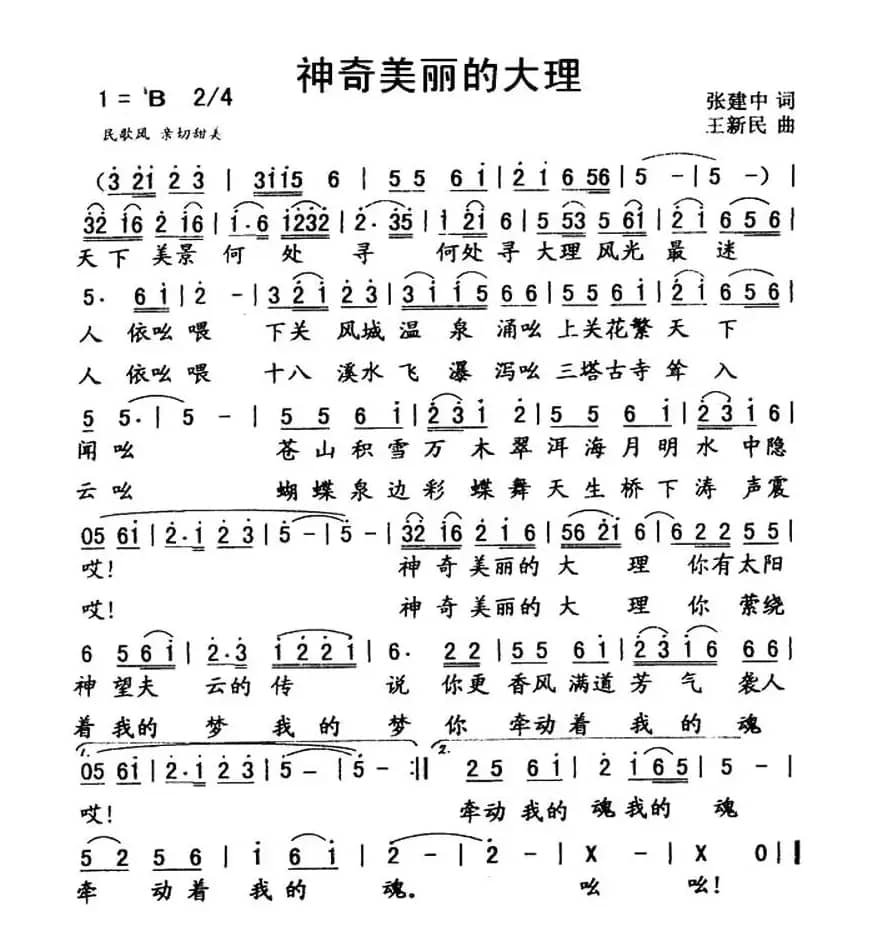 神奇美丽的大理
1 = ♭B 2/4
张建中 词
民歌风 亲切甜美
王新民 曲
(3 21 2 3 | 3115 6 | 5 5 6 1 | 2 1 6 56 | 5 - | 5 - ) |
32 16 2 16 | 1· 6 1232 | 2· 35 | 1 21 6 | 5 53 5 61 | 2 1 6 5 6 |
天下 美景 何 处 寻 何处 寻 大理 风光 最 迷
5· 6 1 | 2 - | 3 2 1 2 3 | 3 1 1 5 6 6 | 5 5 6 1 | 2 1 6 5 6 |
人 依吆 喂 下关 风城 温 泉 涌吆 上关花繁 天 下
人 依吆 喂 十八 溪水 飞 瀑 泻吆 三塔古寺 耸 入
5 5· | 5 - | 5 5 6 1 | 2 3 1 2 | 5 5 6 1 | 2 3 1 6 |
闻 吆 苍山积雪万 木 翠 洱海月明水 中隐
云 吆 蝴蝶泉边彩 蝶 舞 天生桥下涛 声震
05 61 | 2· 1 2 3 | 5 - | 5 - | 32 16 2 1 6 | 56 21 6 | 6 2 2 5 5 |
哎! 神奇美丽的大 理 你有太阳
哎! 神奇美丽的大 理 你 萦绕
6 5 61 | 2· 3 | 1 2 2 1 | 6· 2 2 | 5 5 6 1 | 2 3 1 6 6 6 |
神 望夫 云的 传 说 你更 香风 满道 芳 气 袭人
着 我的 梦 我 的 梦 你 牵动着 我 的 魂
1. 2.
05 61 | 2· 1 2 3 | 5 - | 5 - :|| 2 5 6 1 | 2 1 6 5 | 5 - |
哎! 牵动 我的 魂 我的 魂
5 2 5 6 | 1 6 1 | 2 - | 2 - | X - | X 0 ||
牵 动着 我 的 魂。 吆 吆!